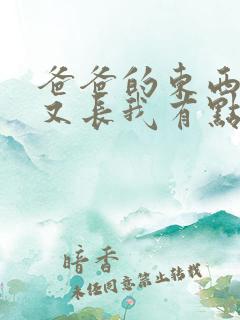 爸爸的東西
又長我有點
暗香
未经同意禁止转载